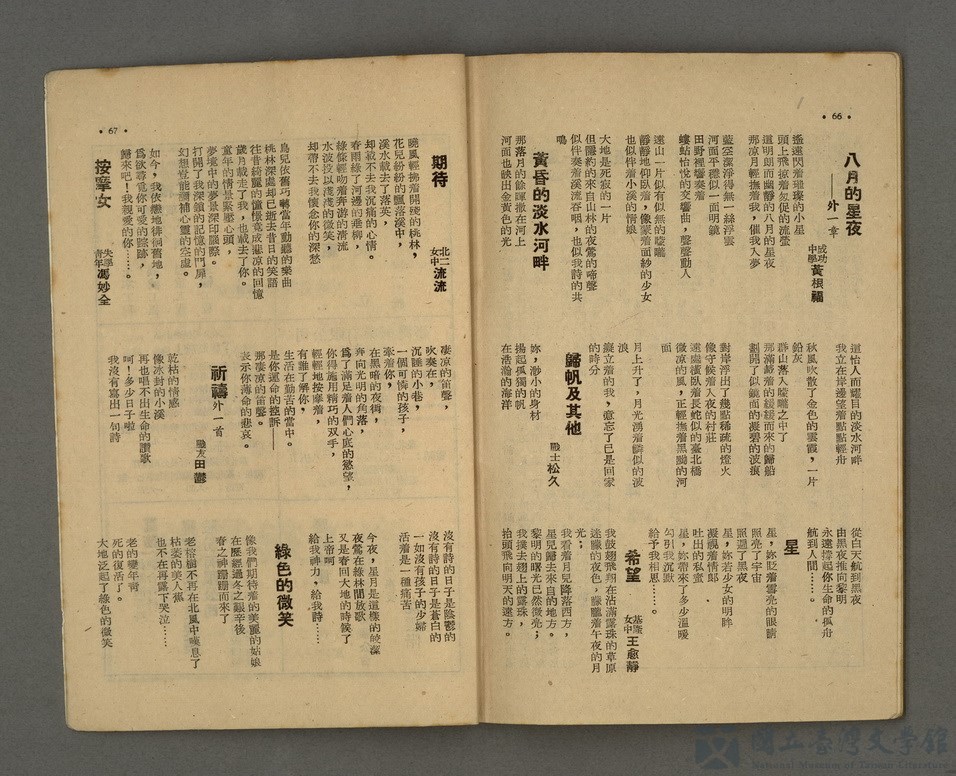 • 66 •
八月的星夜
——外一章
成功中學 黃根福
遙遠閃着璀璨的小星
頭上飛掠着匆促的流螢
道明朗而幽靜的八月的星夜
那凉月輕撫着我,催我入夢
藍空潔淨得無一絲浮雲
河面平穩似一面明鏡
田野裡響奏着
螻蛄怡悅的交響曲,聲聲動人
遠山一片似有似無的朦朧
靜靜地仰臥着,像蒙着面紗的少女
也似伴着小溪的情娘
大地是死寂的一片
但隱約的來自山林的夜鶯的啼聲
似伴奏着溪流吞咽,也似我詩的共
鳴
黃昏的淡水河畔
那落月的餘暉撒在河上
河面也映出金黃色的光
這怡人而耀目的淡水河畔
我立在岸邊望着點點輕舟
秋風吹散了金色的雲霞,一片
鉛灰
群山落入朦朧之中了
那滿載着的緩緩而來的歸船
劃開了似鏡面的凝碧的波痕
對岸浮出了幾點稀疏的燈火
像守候着入夜的村莊
遠處橫臥着長蛇似的臺北橋
微凉的風,正輕撫着黑黝的河
面
月上升了,月光湧着鱗似的波
浪
縱立着的我,意忘了已是回家
的時分
歸帆及其他
戰士 松久
妳,渺小的身材
揚起孤獨的帆
在浩瀚的海洋
從白天航到黑夜
由黑夜推向黎明
永遠撐起你生命的孤舟
航到人間……。
星
星,妳眨着雪亮的眼睛
照亮了宇宙
照邐了黑夜
星,妳若少女的明眸
凝視着情郎
吐出的私蜜
星,妳帶來了多少溫暖
勾引我沉默
給予我相思……。
希望
基隆女中 王愈靜
我鼓翅飛翔在沾滿露珠的草原
迷朦的夜色,朦朧着午夜的月
光;
我看着月兒降落西方,
星兒歸去來自的地方。
黎明的曙光已然微亮;
我撲去翅上的露珠,
抬頭飛向明天的遠方。
• 67 •
期待
北二女中 流流
曉風輕拂着開殘的桃林,
花兒紛紛的飄落溪中,
溪水載去了落英,
却載不去我沉痛的心情。
春雨綠了河邊的垂柳,
綠條輕吻着奔游的清流
水波投以淺淺的微笑,
却帶不去我懷念你的深愁
鳥兒依舊巧囀當年動聽的樂曲
桃林深處却已逝去昔日的笑語
往昔綺麗的憧憬竟成悲凉的回憶
歲月載走了我,也載去了你。
童年的情景縈壓心頭,
夢境中的夢景深印腦際。
打開了我深鎖的記憶的門扉,
幻想竟能彌補心靈的空虛。
如今,我依戀地徘徊舊地,
爲欲尋覓你可愛的踪跡,
歸來吧!我親愛的你……。
按摩女
失學青年 馮妙全
凄凉的笛聲,
吹奏在,
沉睡的小巷,
一個可憐的孩子,
牽着你,
在黑暗的夜裡,
奔向光明的角落,
爲了滿足着人們心底的慾望,
你得施用精巧的双手,
輕輕地按摩着,
有誰了解你,
生活在勤苦的當中。
是你運命的控訴——
那凄凉的笛聲。
表示你薄命的悲哀。
祈禱外一首
戰友 田鬱
乾枯的情感
像冰封的小溪
再也唱不出生命的讚歌
呵!多少日子啦
我沒有寫出一句詩
沒有詩的日子是陰鬱的
沒有詩的日子是蒼白的
一如沒有孩子的少婦
活着是一種痛苦
今夜,星月是這樣的皎潔
夜鶯在綠林間放歌
又是春回大地的時候了
上帝呵
給我神力,給我詩……
綠色的微笑
像我們期待着的美麗的姑娘
在歷經過冬之艱辛後
春之神蹣蹣而來了
老榕樹不再在北風中嘆息了
枯萎的美人蕉
也不在再露下哭泣……
老的變年青
死的復活了。
大地泛起了綠色的微笑
國立臺灣文學館
National Museum of Taiwan Literature